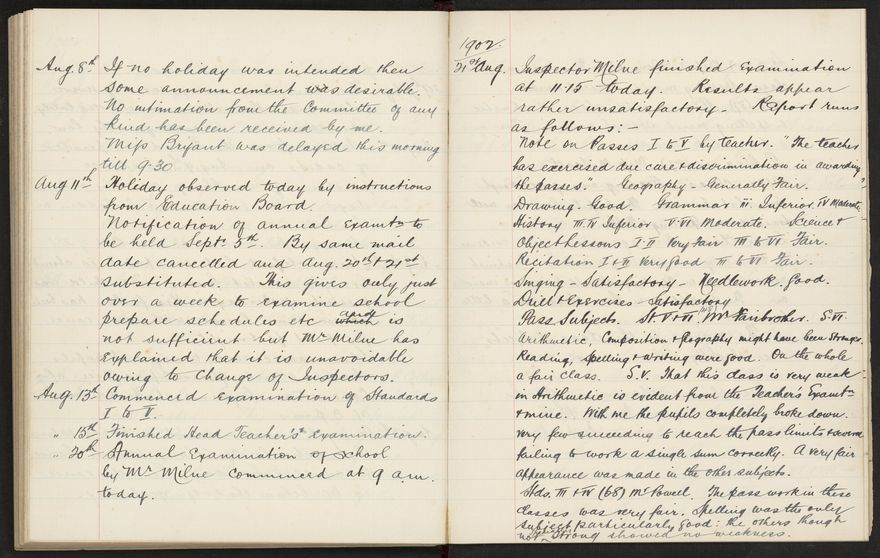 Aug. 8th If no holiday was intended then
some announcement was desirable.
No intimation from the Committee of any
kind has been received by me.
Miss Bryant was delayed this morning
till 9-30
Aug 11th Holiday observed today by instructions
from Education Board.
Notification of annual Examtn to
be held Septr 5th. By same mail
date cancelled and Aug. 20th & 21st
substituted. This gives only just
over a week to examine school
prepare schedules etc which and is
not sufficient but Mr Milne has
explained that it is unavoidable
owing to change of Inspectors.
Aug. 13th Commenced Examination of Standards
I to V.
" 15th Finished Head Teacher's Examination.
" 20th Annual Examination of School
by Mr Milne commenced at 9 a.m.
today.
1902.
21st Aug. Inspector Milne finished Examination
at 11-15 today. Results appear
rather unsatisfactory. Report runs
as follows:-
Note on Passes I to V by teacher. "The teacher
has exercised due care & discrimination in awarding
the passes." Geography - Generally Fair.
Drawing - Good. Grammar iii Inferior, IV Moderate
History III. IV Inferior V-VI Moderate. Science &
Object Lessons I-II Very Fair III to VI Fair.
Recitation I & II Very good III to VI Fair.
Singing - Satisfactory - Needlework. Good.
Drill & Exercises - Satisfactory
Pass Subjects. St V & VI Mr Fairbrother. S. VI
Arithmetic, Composition & Geography might have been Stronger.
Reading, Spelling & Writing were good. On the whole
a fair class. S.V. That this class is very weak
in Arithmetic is evident from the Teacher's Examtn
& mine. With me the pupils completely broke down
very few succeeding to reach the pass limits & several
failing to work a single sum correctly. A very fair
appearance was made in the other subjects.
Stds. III & IV (68) Mr Powell. The pass work in these
classes was very fair. Spelling was the only
subject particularly good: the others though
not strong showed no weakness.